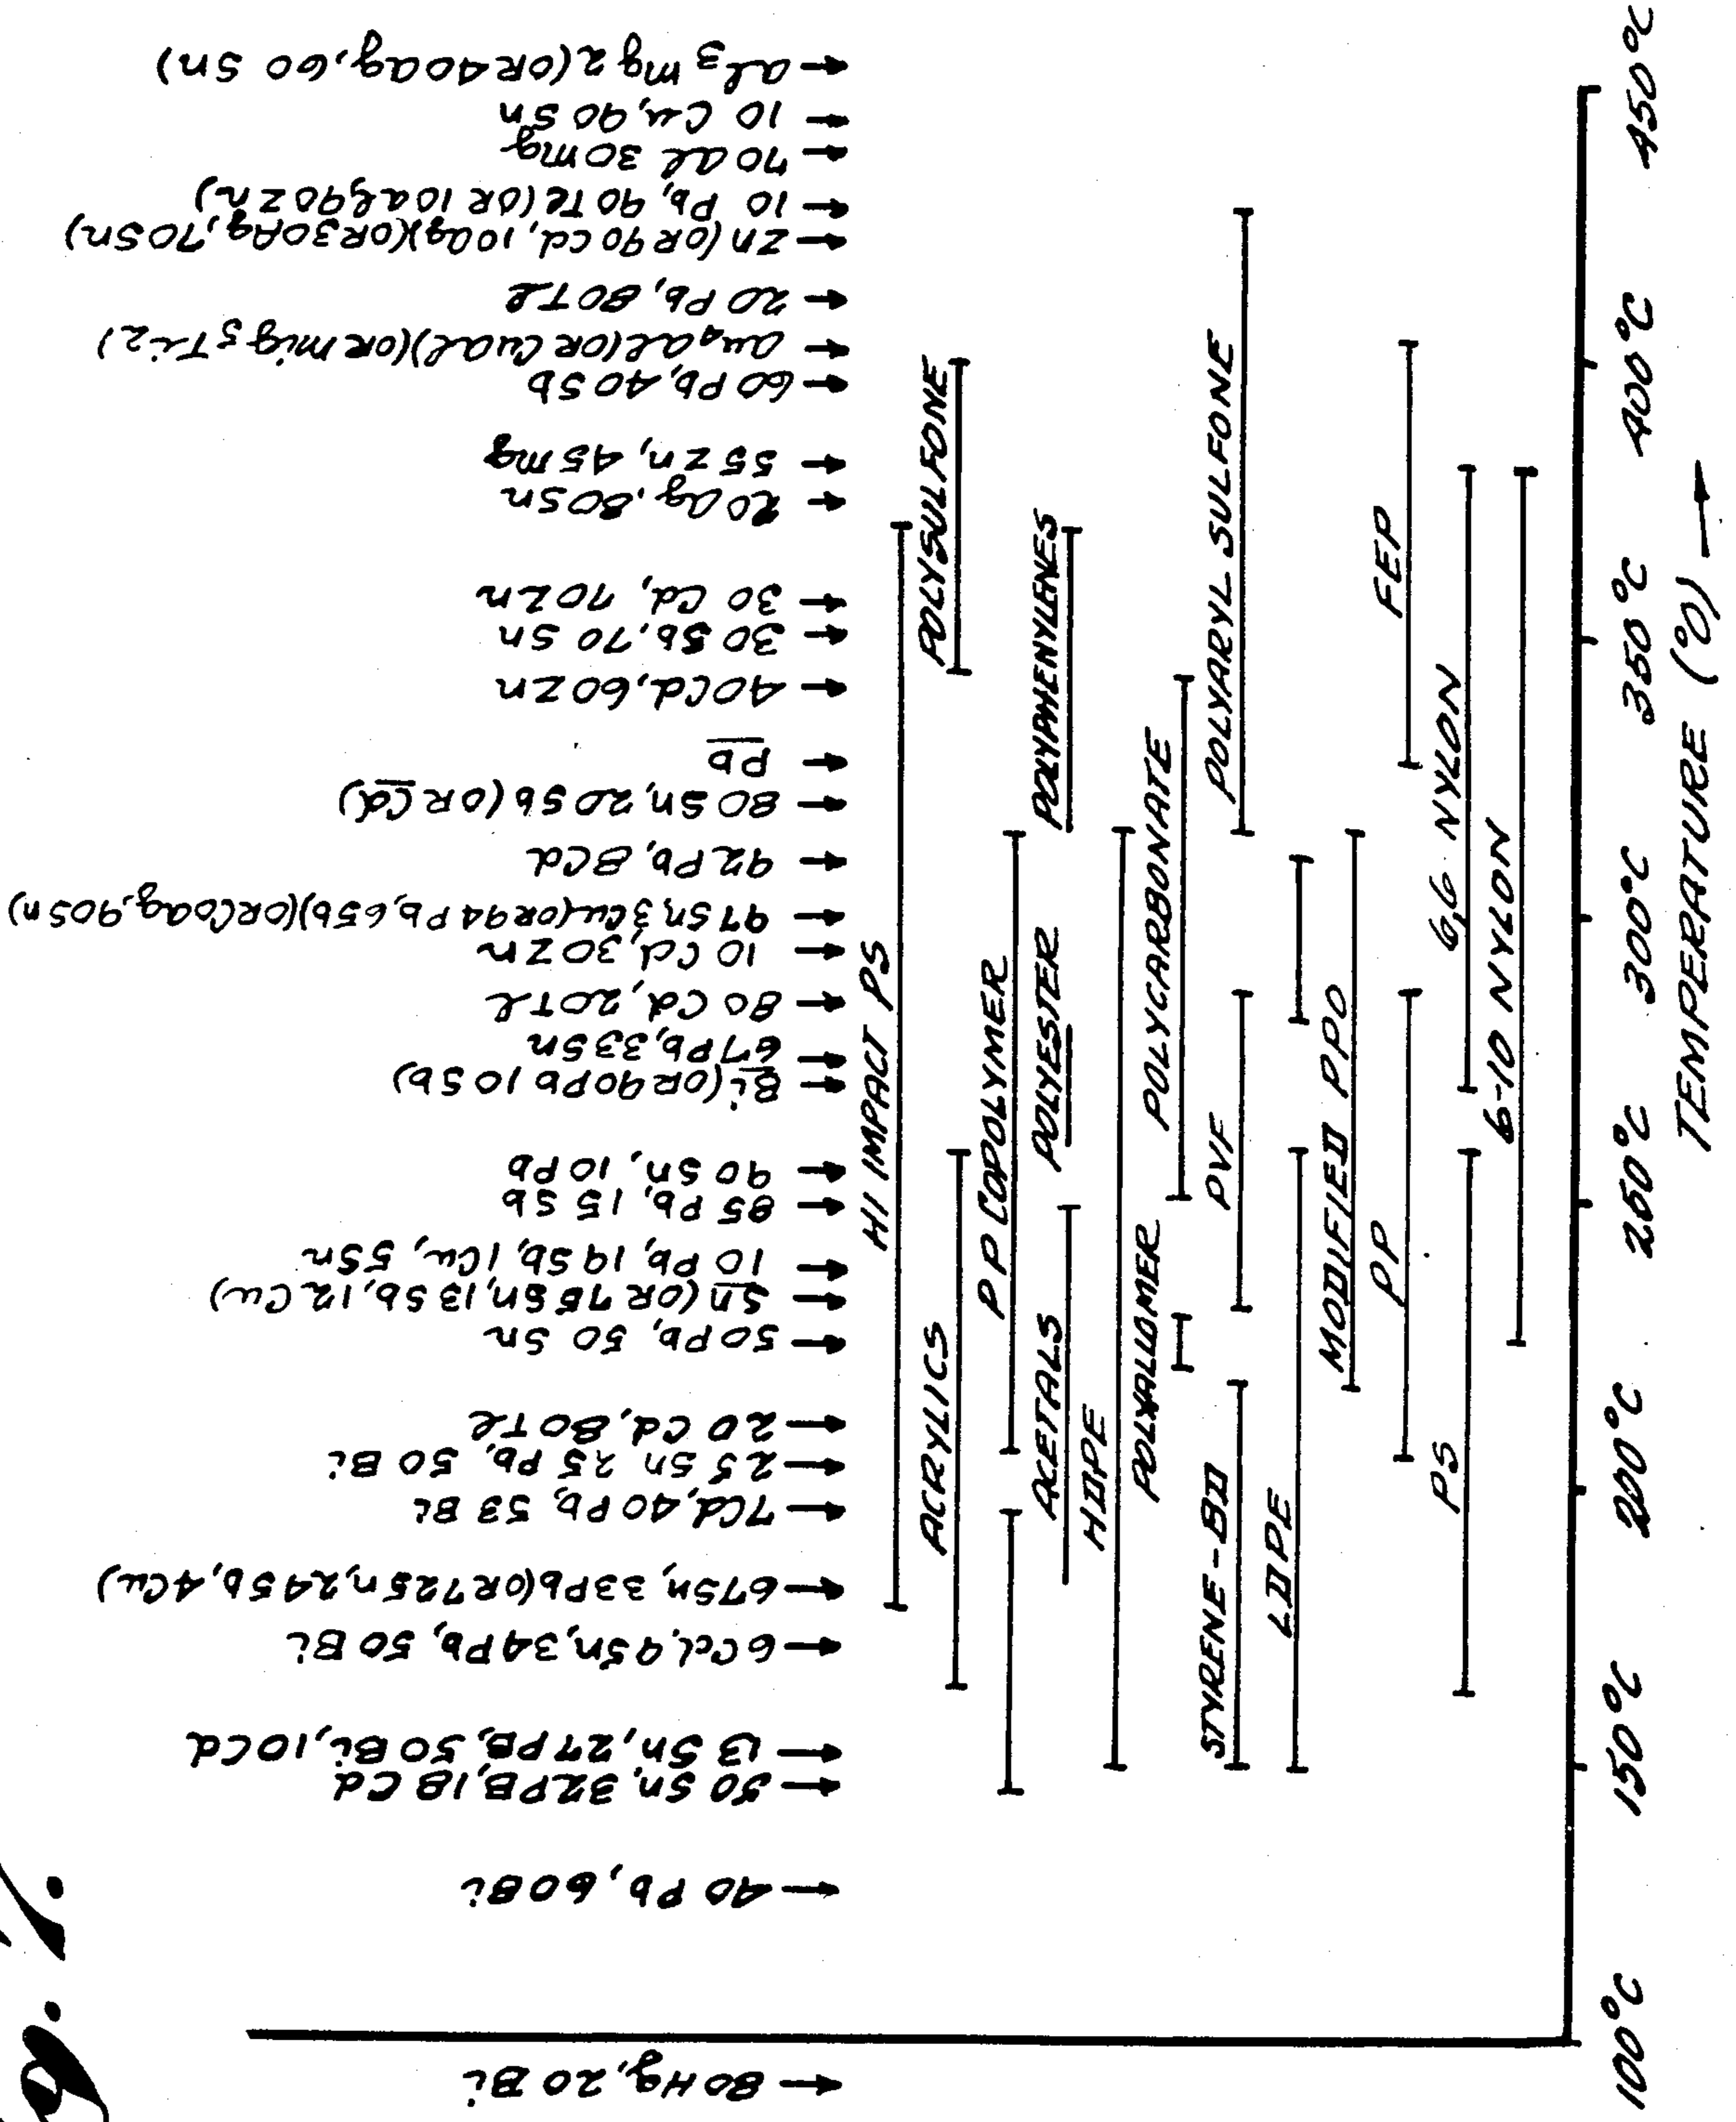 Fig. 1.
al3mg2(OR 40ag,60 Sn)
10 Cu,90 Sn
70 al 30 mg
10 Pb, 90 Te(OR 10al,90Zn)
Zn(OR 90 Cd, 10ag)(OR 30Ag,70Sn)
20 Pb, 80Tl
au4al(OR Cual)(OR mig5Ti2)
60 Pb, 40 Sb
55 Zn, 45 mg
20 ag, 80 Sn
30 Cd, 70 Zn
30 Sb, 70 Sn
40 Cd, 60 Zn
Pb
80 Sn, 20 Sb (OR Cd)
92 Pb, 8Cd
97 Sn, 3Cu(OR 94 Pb, 6Sb)(OR 10ag,90Sn)
10 Cd, 30 Zn
80 Cd, 20Tl
67 Pb, 33 Sn
Bi(OR 90Pb 10 Sb)
90 Sn, 10 Pb
85 Pb, 15 Sb
10 Pb, 19 Sb, 1 Cu, 5 Sn
Sn(OR 75 Sn, 13 Sb, 12 Cu)
50 Pb, 50 Sn
20 Cd, 80 Tl
25 Sn, 25 Pb, 50 Bi
7Cd, 40 Pb, 53 Bi
67Sn, 33Pb(OR 72Sn, 24Sb, 4Cu)
6Cd, 9Sn, 34Pb, 50 Bi
13 Sn, 27 PB, 50 Bi, 10 Cd
50 Sn, 32 PB, 18 Cd
40 Pb, 60 Bi
80 Hg, 20 Bi
HI IMPACT PS
ACRYLICS
POLYSULFONE
PP COPOLYMER
ACETALS
POLYESTER
POLYPHENYLENES
HDPE
POLYALLOMER
POLYCARBONATE
STYRENE-BD
PVF
POLYARYL SULFONE
LDPE
MODIFIED PPO
PP
FEP
PS
6,6 NYLON
6-10 NYLON
100°C
150°C
200°C
250°C
300°C
350°C
400°C
450°C
TEMPERATURE (°0)